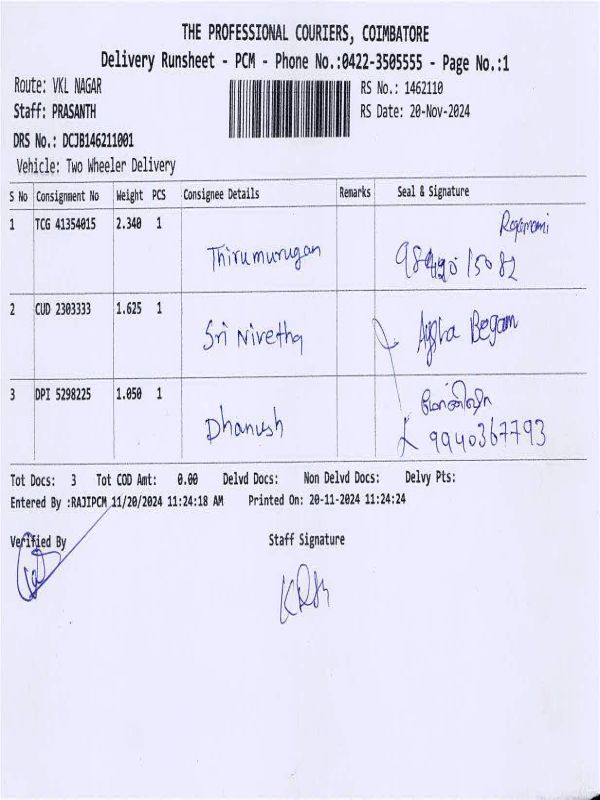 THE PROFESSIONAL COURIERS, COIMBATORE
Delivery Runsheet - PCM - Phone No.:0422-3505555 - Page No.:1
Route: VKL NAGAR
RS No.: 1462110
Staff: PRASANTH
RS Date: 20-Nov-2024
DRS No.: DCJB146211001
Vehicle: Two Wheeler Delivery
S No Consignment No Weight PCS Consignee Details Remarks Seal & Signature
1 TCG 41354015 2.340 1
Thirumurugan
2 CUD 2303333 1.625 1
Sri Nivetha Aysha Begam
3 DPI 5298225 1.050 1
Dhanush 9940367793
Tot Docs: 3 Tot COD Amt: 0.00 Delvd Docs: Non Delvd Docs: Delvy Pts:
Entered By :RAJIPCM 11/20/2024 11:24:18 AM Printed On: 20-11-2024 11:24:24
Verified By Staff Signature